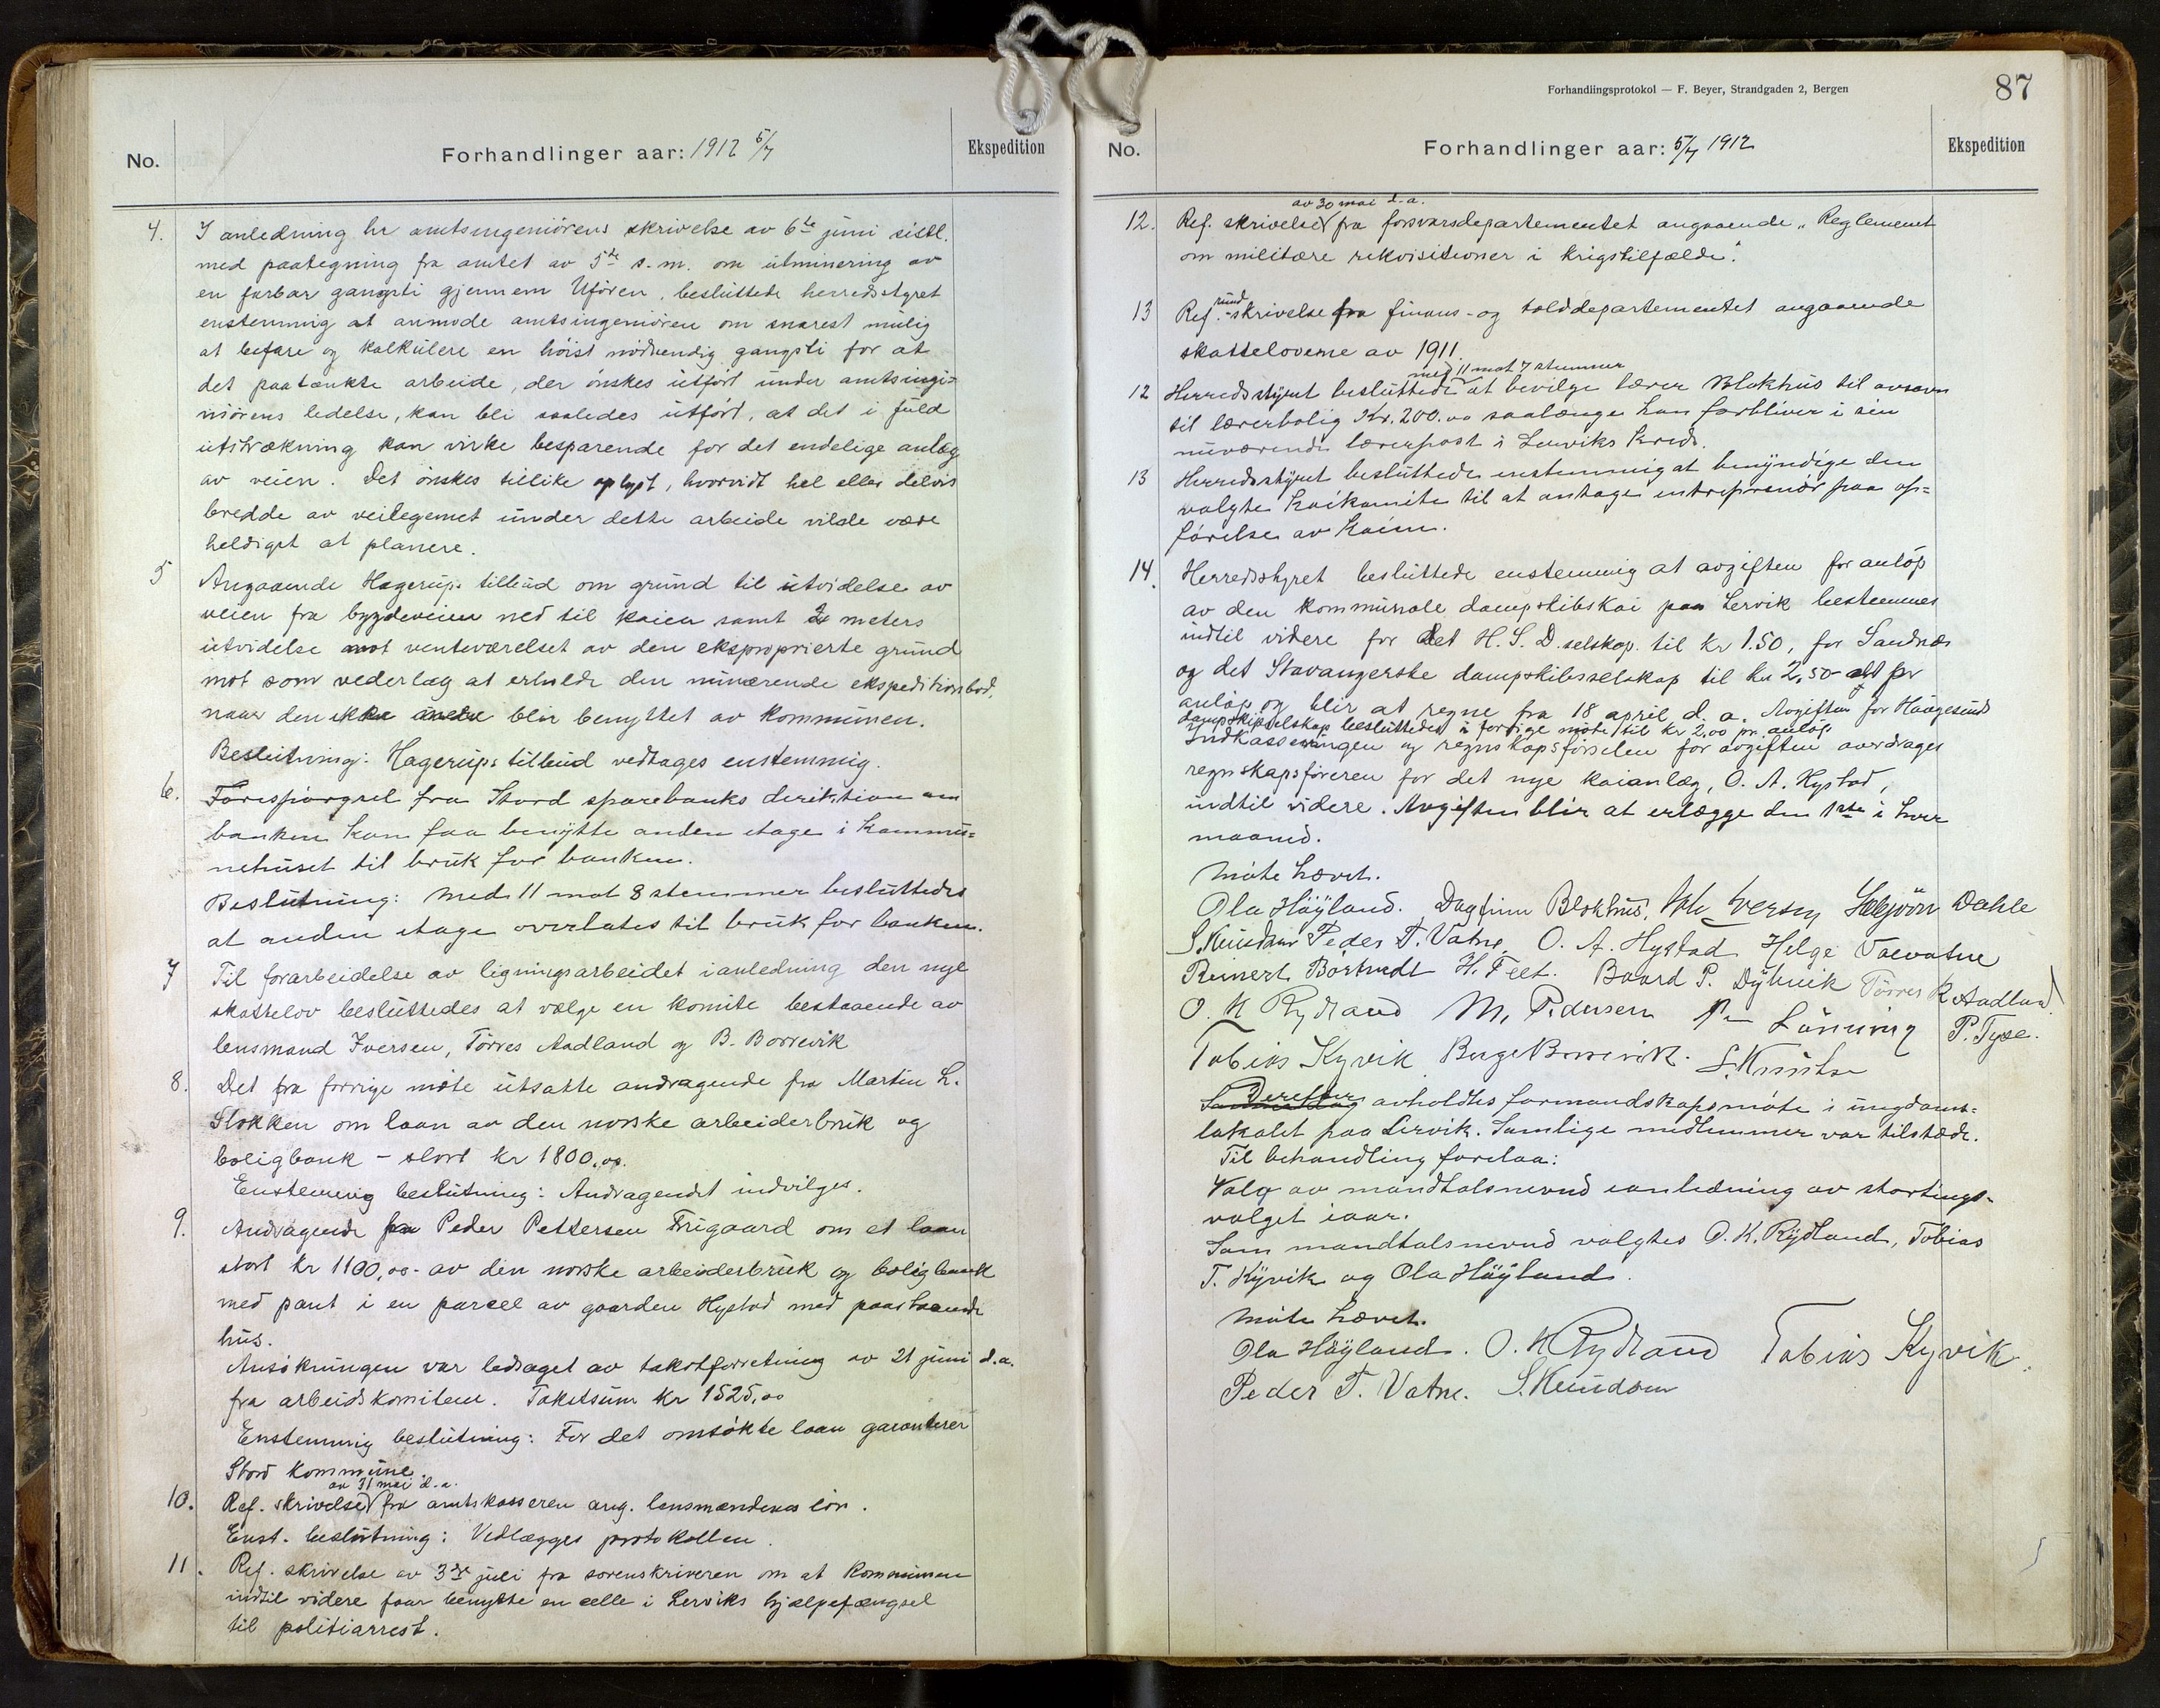 No.
Forhandlinger aar: 1912 5/7
Ekspedition
4. I anledning hr amtsingeniörens skrivelse av 6te juni sistl.
med paategning fra amtet av 5te s.m. om utminering av
en farbar gangsti gjennem Ufören, besluttede herredsstyret
enstemmig at anmode amtsingeniören om snarest mulig
at befare og kalkulere en höist nödvendig gangsti for at
det paatænkte arbeide, der önskes utfört under amtsingi-
niörens ledelse, kan bli saaledes utfört, at det i fuld
utstrækning kan virke besparende for det endelige anlæg
av veien. Det önskes tillike oplyst, hvorvidt hel eller delvis
bredde av veilegemet under dette arbeide vilde være
heldigst at planere.
5 Angaaende Hagerups tilbud om grund til utvidelse av
veien fra bygdeveien ned til kaien samt 2 meters
utvidelse mot venteværelset av den eksproprierte grund
mot som vederlag at erholde den nuværende ekspeditionsbod,
naar den ikke blir benyttet av kommunen.
Beslutning: Hagerups tilbud vedtages enstemmig.
6. Forespörgsel fra Stord sparebanks direktion om
banken kan faa benytte anden etage i kommu=
nehuset til bruk for banken.
Beslutning: Med 11 mot 8 stemmer besluttedes
at anden etage overlates til bruk for banken.
7 Til forarbeidelse av ligningsarbeidet i anledning den nye
skattelov besluttedes at vælge en komite bestaaende av
lensmand Iversen, Törres Aadland og B. Borrevik
8. Det fra forrige möte utsatte andragende fra Martin L.
Stokken om laan av den norske arbeiderbruk og
boligbank - stort kr 1800,00.
Enstemmig beslutning: Andragendet indvilges.
9. Andragende fra Peder Pettersen Frugaard om et laan
stort kr 1100,00 - av den norske arbeiderbruk og boligbank
med pant i en parcel av gaarden Hystad med paastaaende
hus.
Ansökningen var ledsaget av takstforretning av 21 juni d.a.
fra arbeidskomiteen. Takstsum kr 1525,00
Enstemmig beslutning: For det omsökte laan garanterer
Stord kommune.
av 31 mai d.a.
10. Ref. skrivelse fra amtskasseren ang. lensmændenes lön.
Enst. beslutning: Vedlægges protokollen.
11. Ref. skrivelse av 3dje juli fra sorenskriveren om at kommunen
indtil videre faar benytte en celle i Lerviks hjælpefængsel
til politiarrest.
Forhandlingsprotokol — F. Beyer, Strandgaden 2, Bergen
87
No.
Forhandlinger aar: 5/7 1912
Ekspedition
av 30 mai d.a.
12. Ref. skrivelse fra forsvarsdepartementet angaaende „Reglement
om militære rekvisitioner i krigstilfælde".
rund
13 Ref. -skrivelse fra finans- og tolddepartementet angaaende
skattelovene av 1911.
med 11 mot 7 stemmer
12 Herredsstyret besluttede at bevilge lærer Blokhus til avsavn
til lærerbolig Kr. 200.00 saalænge han forbliver i sin
nuværende lærerpost i Lerviks kreds.
13 Herredsstyret besluttede enstemmig at bemyndige den
valgte kaikomite til at antage entreprenör paa op=
förelse av kaien.
14. Herredsstyret besluttede enstemmig at avgiften for anlöp
av den kommunale dampskibskai paa Lervik bestemmes
indtil videre for det H. S. D. selskap til kr 1.50, for Sandnæs
og det Stavangerske dampskibsselskap til kr 2,50 alt pr
anlöp og blir at regne fra 18 april d.a. Avgiften for Haugesunds
dampskipselskap besluttedes i forrige möte til kr 2,00 pr. anlöp
Indkasseringen og regnskapsförselen for avgiften overdrages
regnskapsföreren for det nye kaianlæg, O. A. Hystad,
indtil videre. Avgiften blir at erlægge den 1ste i hver
maaned.
Möte hævet.
Ola Höyland. Dagfinn Blokhus. Joh Iversen Halgjörn Dahle
S. Knudsen Peder T. Vatne O. A. Hystad Helge Vaevatne
Reinert Börtveit H. Feet. Baard P. Dybvik Törres R Aadland
O. K Rydland M. Pedersen Per Lönning P. Tyse.
Tobias Kyvik Berge Borrevik. S. Knutsen
Derefter
avholdtes formandskapsmöte i ungdoms=
lokalet paa Lervik. Samtlige medlemmer var tilstede.
Til behandling forelaa:
Valg av mandtalsnevnd i anledning av stortings-
valget i aar.
Som mandtalsnevnd valgtes O. K. Rydland, Tobias
T. Kyvik og Ola Höyland.
Möte hævet.
Ola Höyland. O. K Rydland Tobias Kyvik.
Peder T. Vatne. S. Knudsen